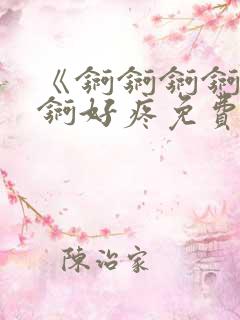 《锕锕锕锕
锕好疼免费
陈治家